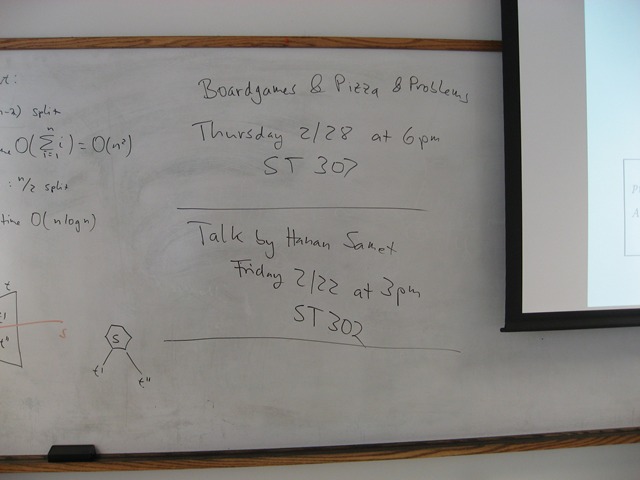 split
O(∑ i) = O(n²)
n
i=1
: n/2 split
time O(n log n)
t
s
S
t'
t"
Boardgames & Pizza & Problems
Thursday 2/28 at 6pm
ST 307
Talk by Hanan Samet
Friday 2/22 at 3pm
ST 302